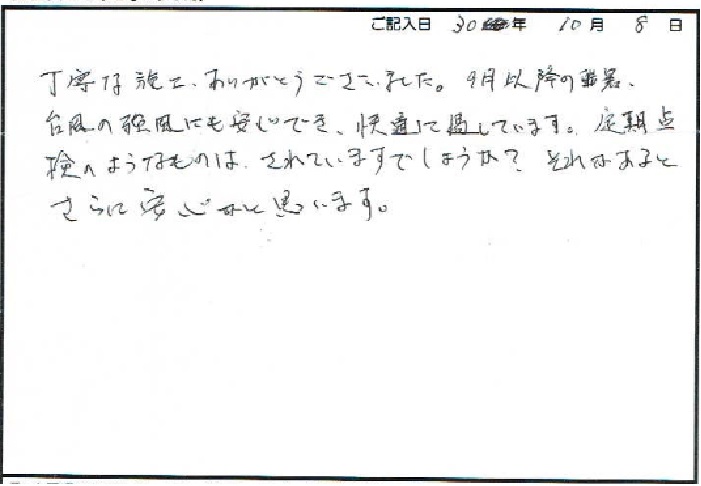 ご記入日 30年 10月 8日
丁寧な施工、ありがとうございました。9月以降の猛暑、
台風の強風にも安心でき、快適に過しています。定期点
検のようなものは、されていますでしょうか？それがあると
さらに安心かと思います。